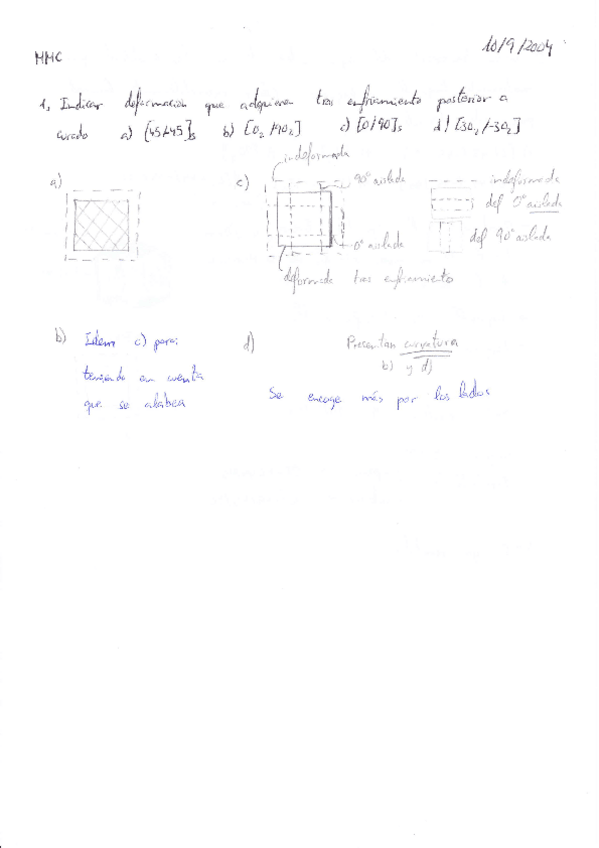 10/9/2004
MMC
1, Indicar deformación que adquieren tras enfriamiento posterior a
curado a) [45/-45]s b) [0₂/90₂] c) [0/90]s d) [30₂/-30₂]
indeformada
a)
c)
90º aislada
0º aislada
deformada tras enfriamiento
indeformada
def 0º aislada
def 90º aislada
b) Idem c) pero
teniendo en cuenta
que se alabea
d)
Presentan curvatura
b) y d)
Se encoge más por los lados